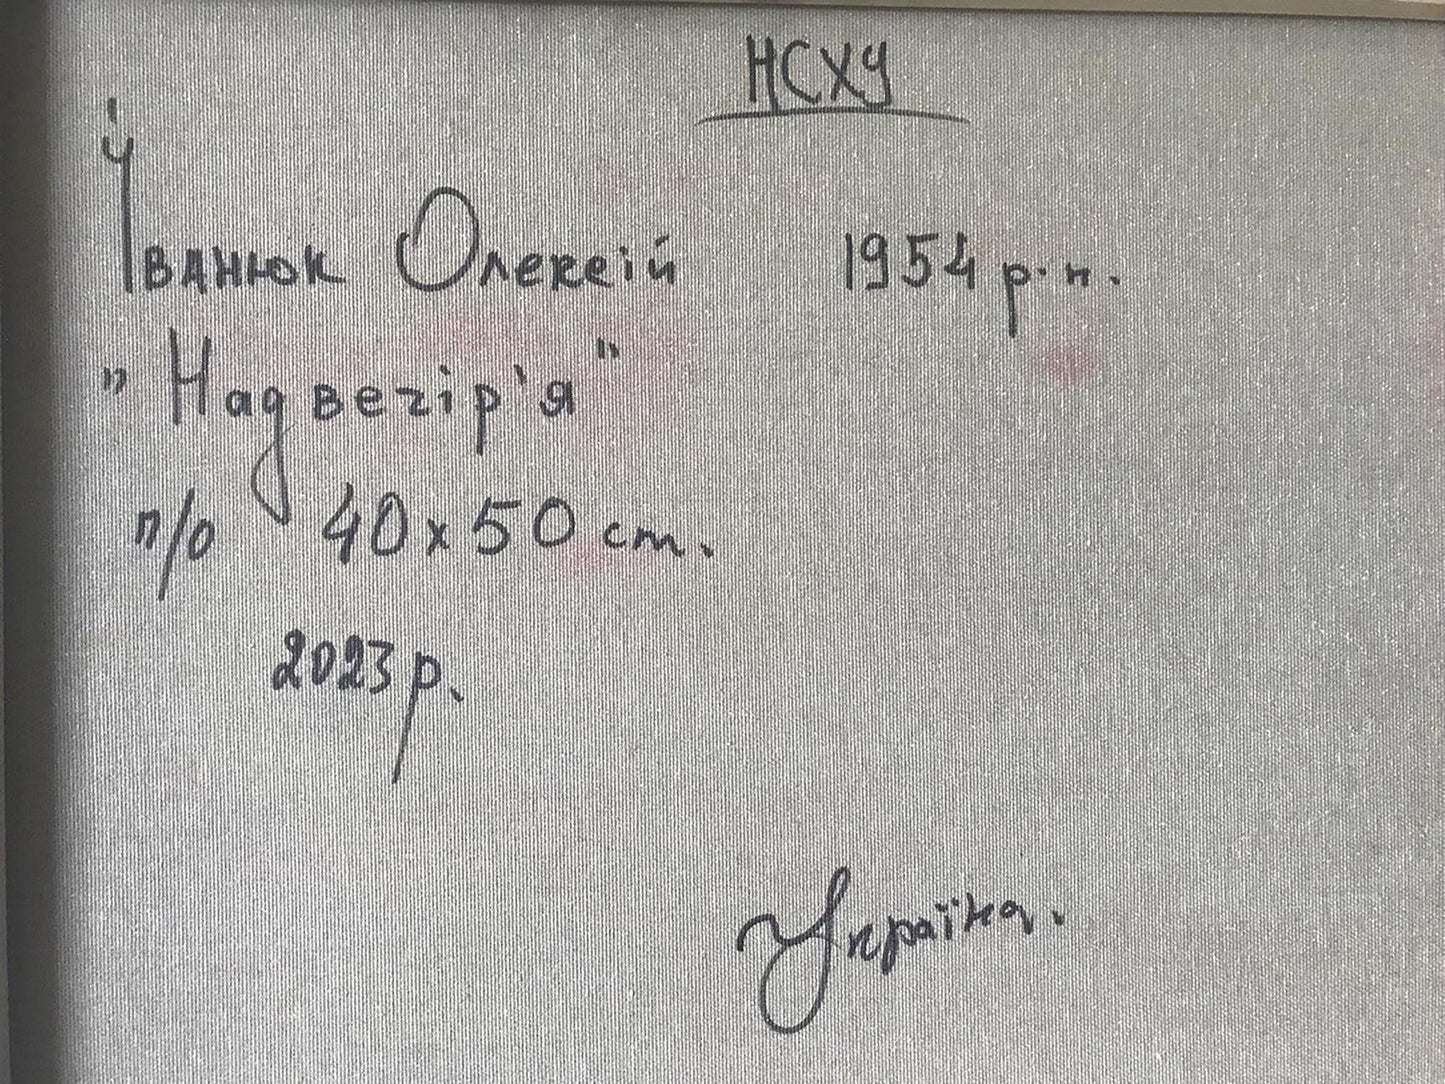 НСХУ
Іванюк Олексій 1954 р.н.
"Надвечір'я"
п/о 40х50 ст.
2023 р.
Україна.